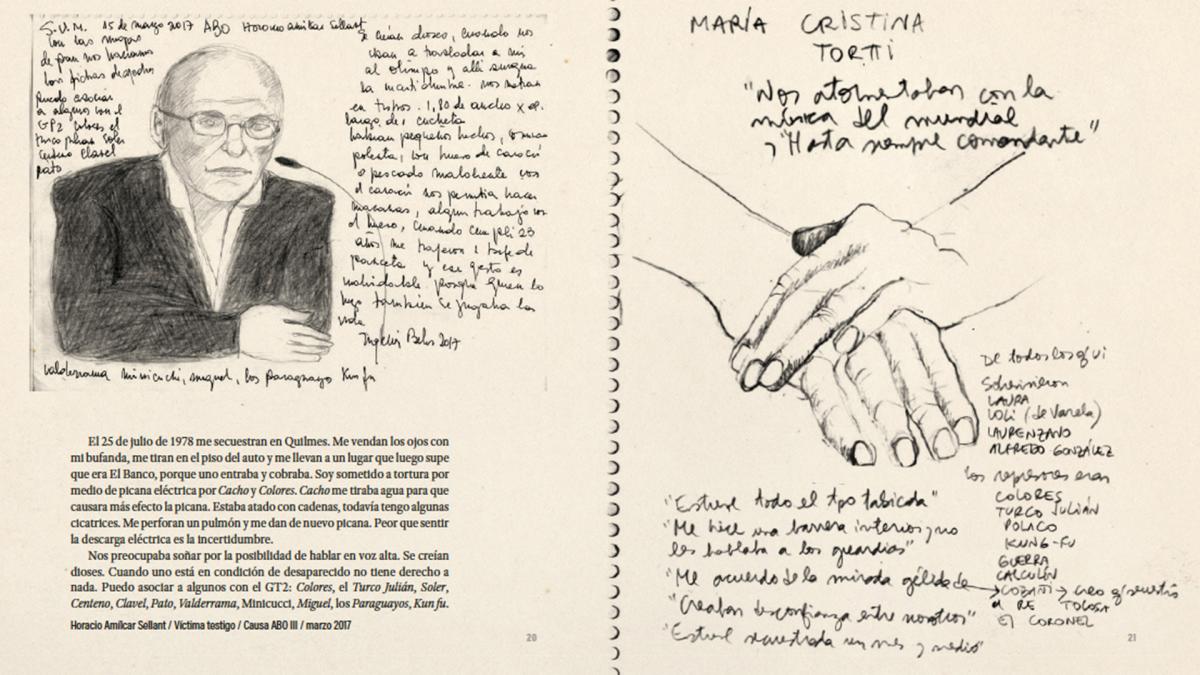 S.U.M. 15 de marzo 2017 ABO Horacio Amílcar Sellant
con las migas
de pan nos hacíamos
las fichas de ajedrez
Puedo asociar
a algunos con el
GP2 Colores el
turco Julián Soler
Centeno Clavel
Pato
Se creían dioses, cuando nos
iban a trasladar a mi
al olimpo y allí
la nos metían
en tubos. 1,80 de ancho x
largo de 1 cucheta
habían pequeños hechos,
polenta, con hueso de caracú
o pescado maloliente con
el caracú nos permitía hacer
algún trabajo con
el hueso, cuando cumplí 23
años me trajeron 1 bife de
paleta y ese gesto es
inolvidable porque quien lo
hizo también se jugaba la
vida
2017
Valderrama Minicucchi, miguel, los Paraguayo Kun fu
El 25 de julio de 1978 me secuestran en Quilmes. Me vendan los ojos con
mi bufanda, me tiran en el piso del auto y me llevan a un lugar que luego supe
que era El Banco, porque uno entraba y cobraba. Soy sometido a tortura por
medio de picana eléctrica por Cacho y Colores. Cacho me tiraba agua para que
causara más efecto la picana. Estaba atado con cadenas, todavía tengo algunas
cicatrices. Me perforan un pulmón y me dan de nuevo picana. Peor que sentir
la descarga eléctrica es la incertidumbre.
Nos preocupaba soñar por la posibilidad de hablar en voz alta. Se creían
dioses. Cuando uno está en condición de desaparecido no tiene derecho a
nada. Puedo asociar a algunos con el GT2: Colores, el Turco Julián, Soler,
Centeno, Clavel, Pato, Valderrama, Minicucci, Miguel, los Paraguayos, Kun fu.
Horacio Amílcar Sellant / Víctima testigo / Causa ABO III / marzo 2017
20
MARÍA CRISTINA
TORTTI
"Nos atormentaban con la
música del mundial
y "Hasta siempre comandante"
De todos los q vi
sobrevivieron
LAURA
LOLI (de Varela)
LAURENZANO
ALFREDO GONZÁLEZ
los represores eran
COLORES
TURCO JULIÁN
POLACO
KUNG-FU
GUERRA
CALCULÍN
COZANI → creo q secuestró
a RE TOLOSA
El CORONEL
"Estuve todo el tpo tabicada"
"Me hice una barrera interior y no
les hablaba a los guardias"
"Me acuerdo de la mirada gélida de
"Creaban desconfianza entre nosotros"
"Estuve secuestrada un mes y medio"
21